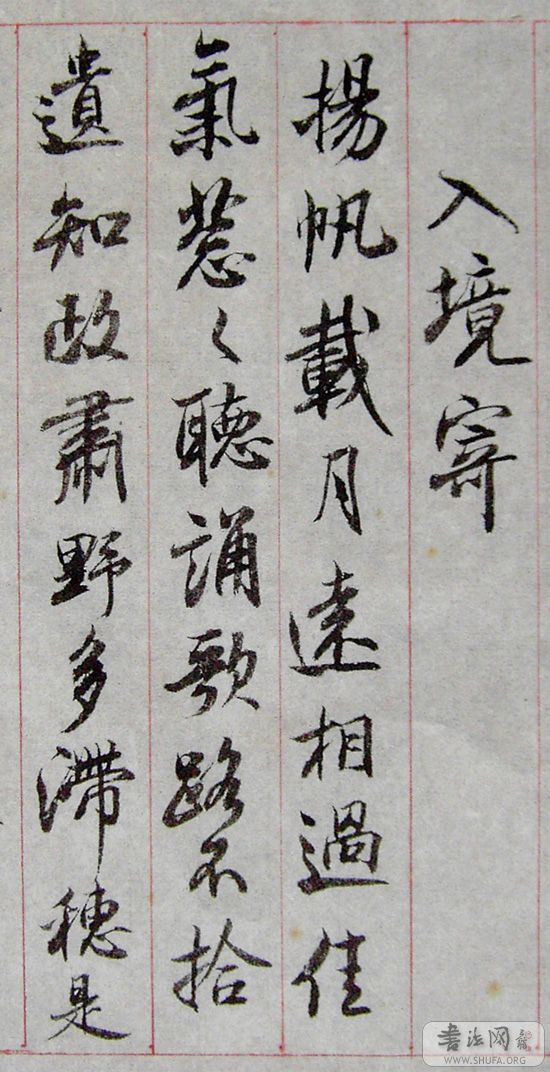 入境寄
揚帆載月遠相過佳
氣蔥々聽誦歌路不拾
遺知政肅野多滯穗是
書法网
WWW.SHUFA.ORG